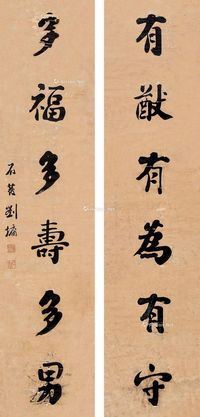 有猷有為有守
多福多壽多男
石菴劉墉